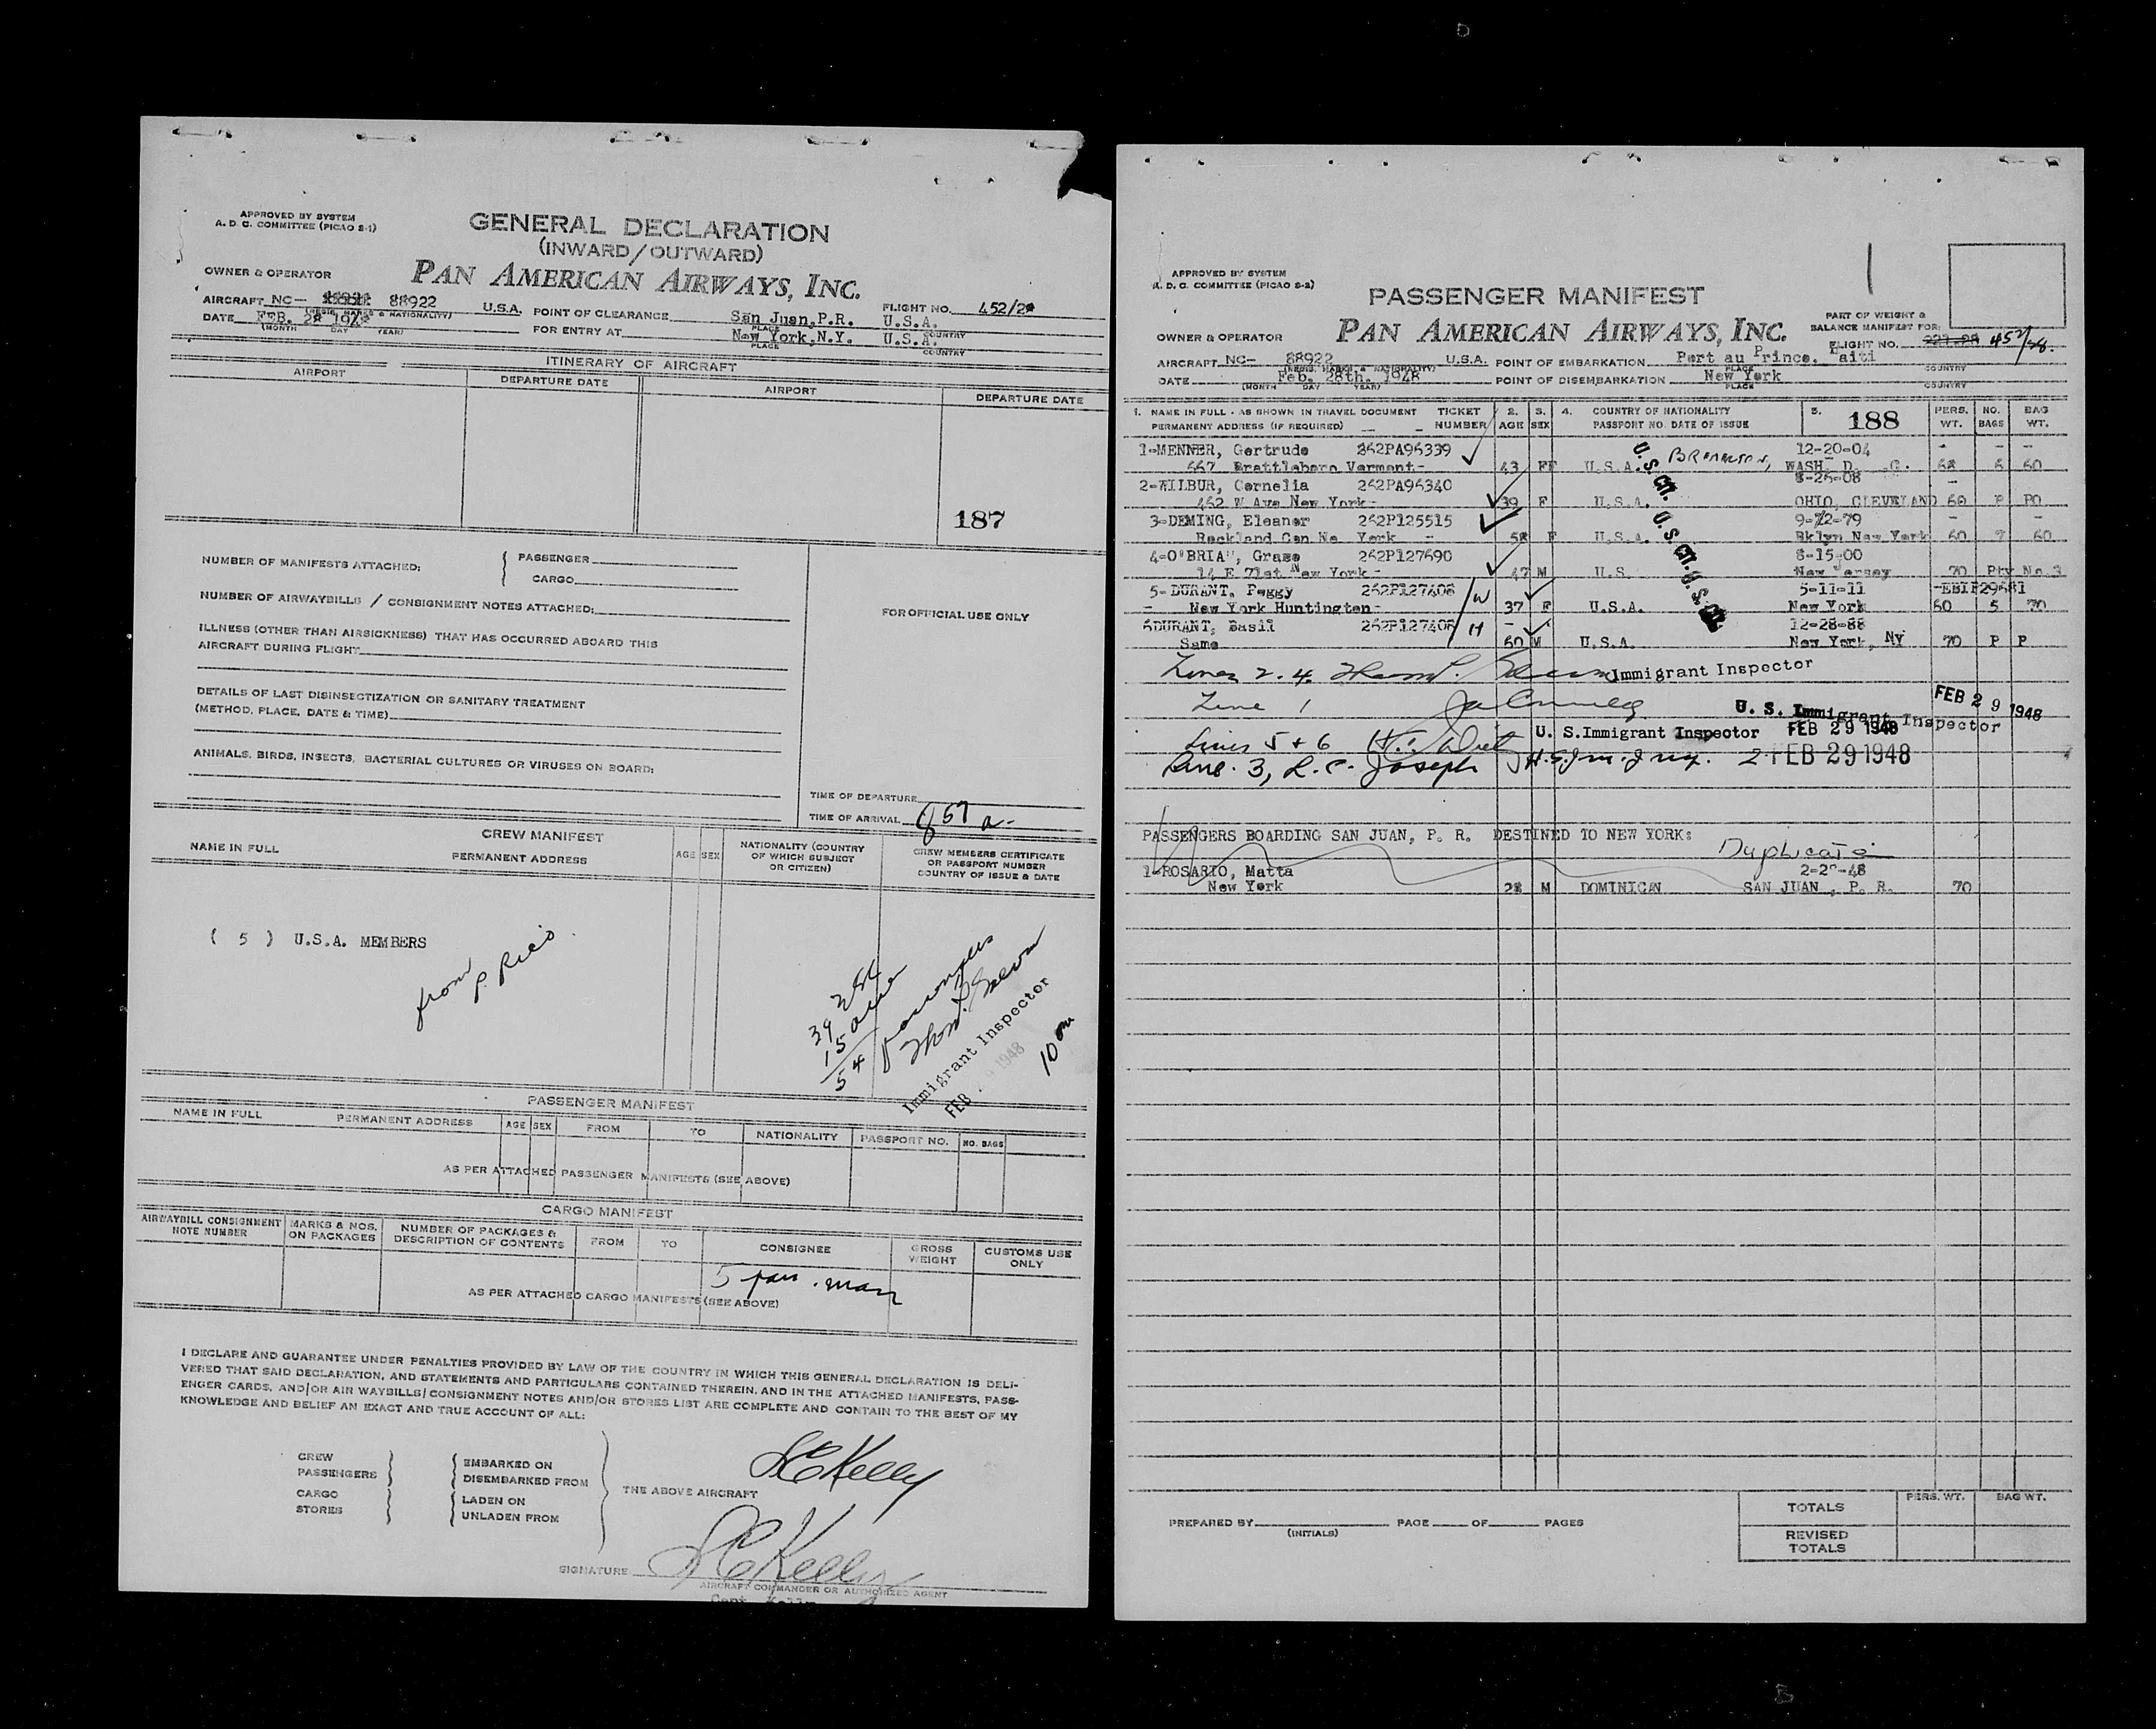 APPROVED BY SYSTEM
A. D. C. COMMITTEE (PICAO S-1)
GENERAL DECLARATION
(INWARD/OUTWARD)
OWNER & OPERATOR
PAN AMERICAN AIRWAYS, INC.
AIRCRAFT NC- 88922 U.S.A. POINT OF CLEARANCE San Juan,P.R. U.S.A. FLIGHT NO. 452/28
(REGIS. MARKS & NATIONALITY) PLACE COUNTRY
DATE FEB. 28 1948 FOR ENTRY AT New York,N.Y. U.S.A.
(MONTH DAY YEAR) PLACE COUNTRY
ITINERARY OF AIRCRAFT
AIRPORT DEPARTURE DATE AIRPORT DEPARTURE DATE
187
NUMBER OF MANIFESTS ATTACHED: { PASSENGER
CARGO
NUMBER OF AIRWAYBILLS / CONSIGNMENT NOTES ATTACHED:
FOR OFFICIAL USE ONLY
ILLNESS (OTHER THAN AIRSICKNESS) THAT HAS OCCURRED ABOARD THIS
AIRCRAFT DURING FLIGHT
DETAILS OF LAST DISINSECTIZATION OR SANITARY TREATMENT
(METHOD, PLACE, DATE & TIME)
ANIMALS, BIRDS, INSECTS, BACTERIAL CULTURES OR VIRUSES ON BOARD:
TIME OF DEPARTURE
TIME OF ARRIVAL 8 57 a-
CREW MANIFEST
NAME IN FULL PERMANENT ADDRESS AGE SEX NATIONALITY (COUNTRY OF WHICH SUBJECT OR CITIZEN) CREW MEMBERS CERTIFICATE OR PASSPORT NUMBER COUNTRY OF ISSUE & DATE
( 5 ) U.S.A. MEMBERS
from P. Rico
39
15
54
Immigrant Inspector
FEB 1948
10
PASSENGER MANIFEST
NAME IN FULL PERMANENT ADDRESS AGE SEX FROM TO NATIONALITY PASSPORT NO. NO. BAGS
AS PER ATTACHED PASSENGER MANIFESTS (SEE ABOVE)
CARGO MANIFEST
AIRWAYBILL CONSIGNMENT NOTE NUMBER MARKS & NOS. ON PACKAGES NUMBER OF PACKAGES & DESCRIPTION OF CONTENTS FROM TO CONSIGNEE GROSS WEIGHT CUSTOMS USE ONLY
5 pan. man
AS PER ATTACHED CARGO MANIFESTS (SEE ABOVE)
I DECLARE AND GUARANTEE UNDER PENALTIES PROVIDED BY LAW OF THE COUNTRY IN WHICH THIS GENERAL DECLARATION IS DELI-
VERED THAT SAID DECLARATION, AND STATEMENTS AND PARTICULARS CONTAINED THEREIN, AND IN THE ATTACHED MANIFESTS, PASS-
ENGER CARDS, AND/OR AIR WAYBILLS/CONSIGNMENT NOTES AND/OR STORES LIST ARE COMPLETE AND CONTAIN TO THE BEST OF MY
KNOWLEDGE AND BELIEF AN EXACT AND TRUE ACCOUNT OF ALL:
CREW
PASSENGERS
CARGO
STORES
EMBARKED ON
DISEMBARKED FROM
LADEN ON
UNLADEN FROM
THE ABOVE AIRCRAFT
Kelly
SIGNATURE Kelly
AIRCRAFT COMMANDER OR AUTHORIZED AGENT
Capt. Kelly
APPROVED BY SYSTEM
A. D. C. COMMITTEE (PICAO S-2)
PASSENGER MANIFEST
PART OF WEIGHT &
BALANCE MANIFEST FOR:
OWNER & OPERATOR
PAN AMERICAN AIRWAYS, INC.
FLIGHT NO. 221-28 452/28.
AIRCRAFT NC- 88922 U.S.A. POINT OF EMBARKATION Port au Prince, Haiti
(REGIS. MARKS & NATIONALITY) PLACE COUNTRY
DATE Feb. 28th, 1948 POINT OF DISEMBARKATION New York
(MONTH DAY YEAR) PLACE COUNTRY
1. NAME IN FULL - AS SHOWN IN TRAVEL DOCUMENT TICKET 2. 3. 4. COUNTRY OF NATIONALITY 5. 188 PERS. NO. BAG
PERMANENT ADDRESS (IF REQUIRED) NUMBER AGE SEX PASSPORT NO. DATE OF ISSUE WT. BAGS WT.
1-MENNER, Gertrude 262PA96339 12-20-04
667 Brattleboro Vermont- 43 FF U.S.A. WASH. D. C. 68 6 60
2-WILBUR, Cornelia 262PA96340 8-26-08
462 W Ave New York- 39 F U.S.A. OHIO, CLEVELAND 60 P PO
3-DEMING, Eleanor 262P125515 9-12-79
Rockland Con Ne York - 58 F U.S.A. Bklyn New York 60 ? 60
4-O'BRIA", Grace 262P127690 8-15-00
14 E 71st New York- 47 M U.S. New Jersey 70 Pty No.3
5- DURANT, Peggy 262P127408 W 5-11-11 -EBIP29681
New York Huntington- 37 F U.S.A. New York 60 5 70
6DURANT, Basil 262P127408 H 12-28-88
Same 60 M U.S.A. New York, NY 70 P P
U.S. Cit. U.S. Cit. U.S. Cit.
Lines 2-4. Immigrant Inspector
Line 1 U. S. Immigrant Inspector FEB 29 1948
Lines 5 + 6 U. S. Immigrant Inspector FEB 29 1948
Line. 3, L. C. Joseph FEB 29 1948
PASSENGERS BOARDING SAN JUAN, P. R. DESTINED TO NEW YORK:
Duplicate
1-ROSARIO, Matta
New York 28 M DOMINICAN SAN JUAN, P. R. 70
PREPARED BY (INITIALS) PAGE OF PAGES
PERS. WT. BAG WT.
TOTALS
REVISED TOTALS